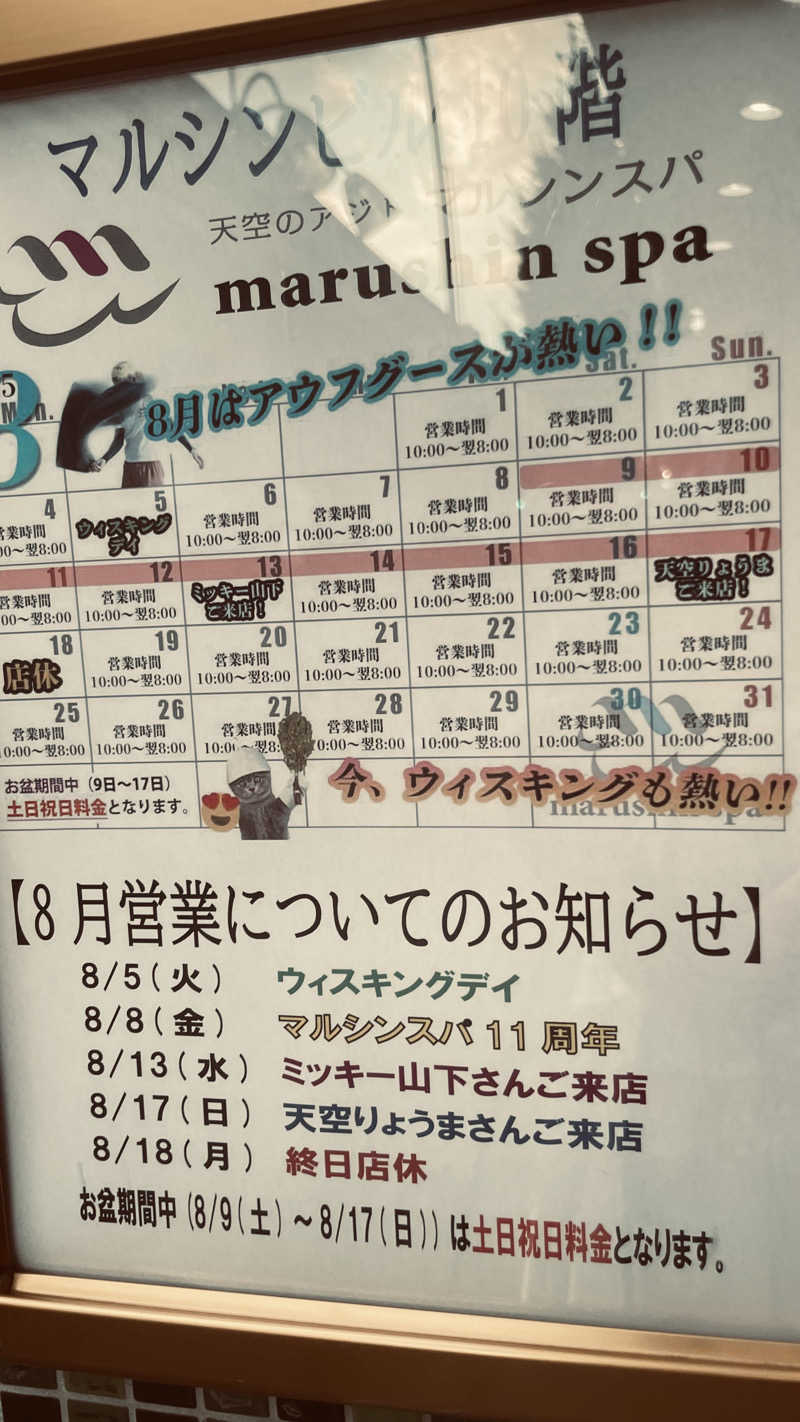 マルシンビル10階
天空のアジト マルシンスパ
marushin spa
8月はアウフグースが熱い!!
Sat. Sun.
1 2 3
営業時間 営業時間 営業時間
10:00〜翌8:00 10:00〜翌8:00 10:00〜翌8:00
4 5 6 7 8 9 10
営業時間 ウィスキングデイ 営業時間 営業時間 営業時間 営業時間 営業時間
00〜翌8:00 10:00〜翌8:00 10:00〜翌8:00 10:00〜翌8:00 10:00〜翌8:00 10:00〜翌8:00
11 12 13 14 15 16 17
営業時間 営業時間 ミッキー山下 営業時間 営業時間 営業時間 天空りょうま
00〜翌8:00 10:00〜翌8:00 ご来店! 10:00〜翌8:00 10:00〜翌8:00 10:00〜翌8:00 ご来店!
18 19 20 21 22 23 24
店休 営業時間 営業時間 営業時間 営業時間 営業時間 営業時間
10:00〜翌8:00 10:00〜翌8:00 10:00〜翌8:00 10:00〜翌8:00 10:00〜翌8:00 10:00〜翌8:00
25 26 27 28 29 30 31
営業時間 営業時間 営業時間 営業時間 営業時間 営業時間 営業時間
10:00〜翌8:00 10:00〜翌8:00 10:00〜翌8:00 10:00〜翌8:00 10:00〜翌8:00 10:00〜翌8:00
お盆期間中(9日〜17日)
土日祝日料金となります。
今、ウィスキングも熱い!!
【8月営業についてのお知らせ】
8/5(火) ウィスキングデイ
8/8(金) マルシンスパ 11周年
8/13(水) ミッキー山下さんご来店
8/17(日) 天空りょうまさんご来店
8/18(月) 終日店休
お盆期間中(8/9(土)〜8/17(日))は土日祝日料金となります。